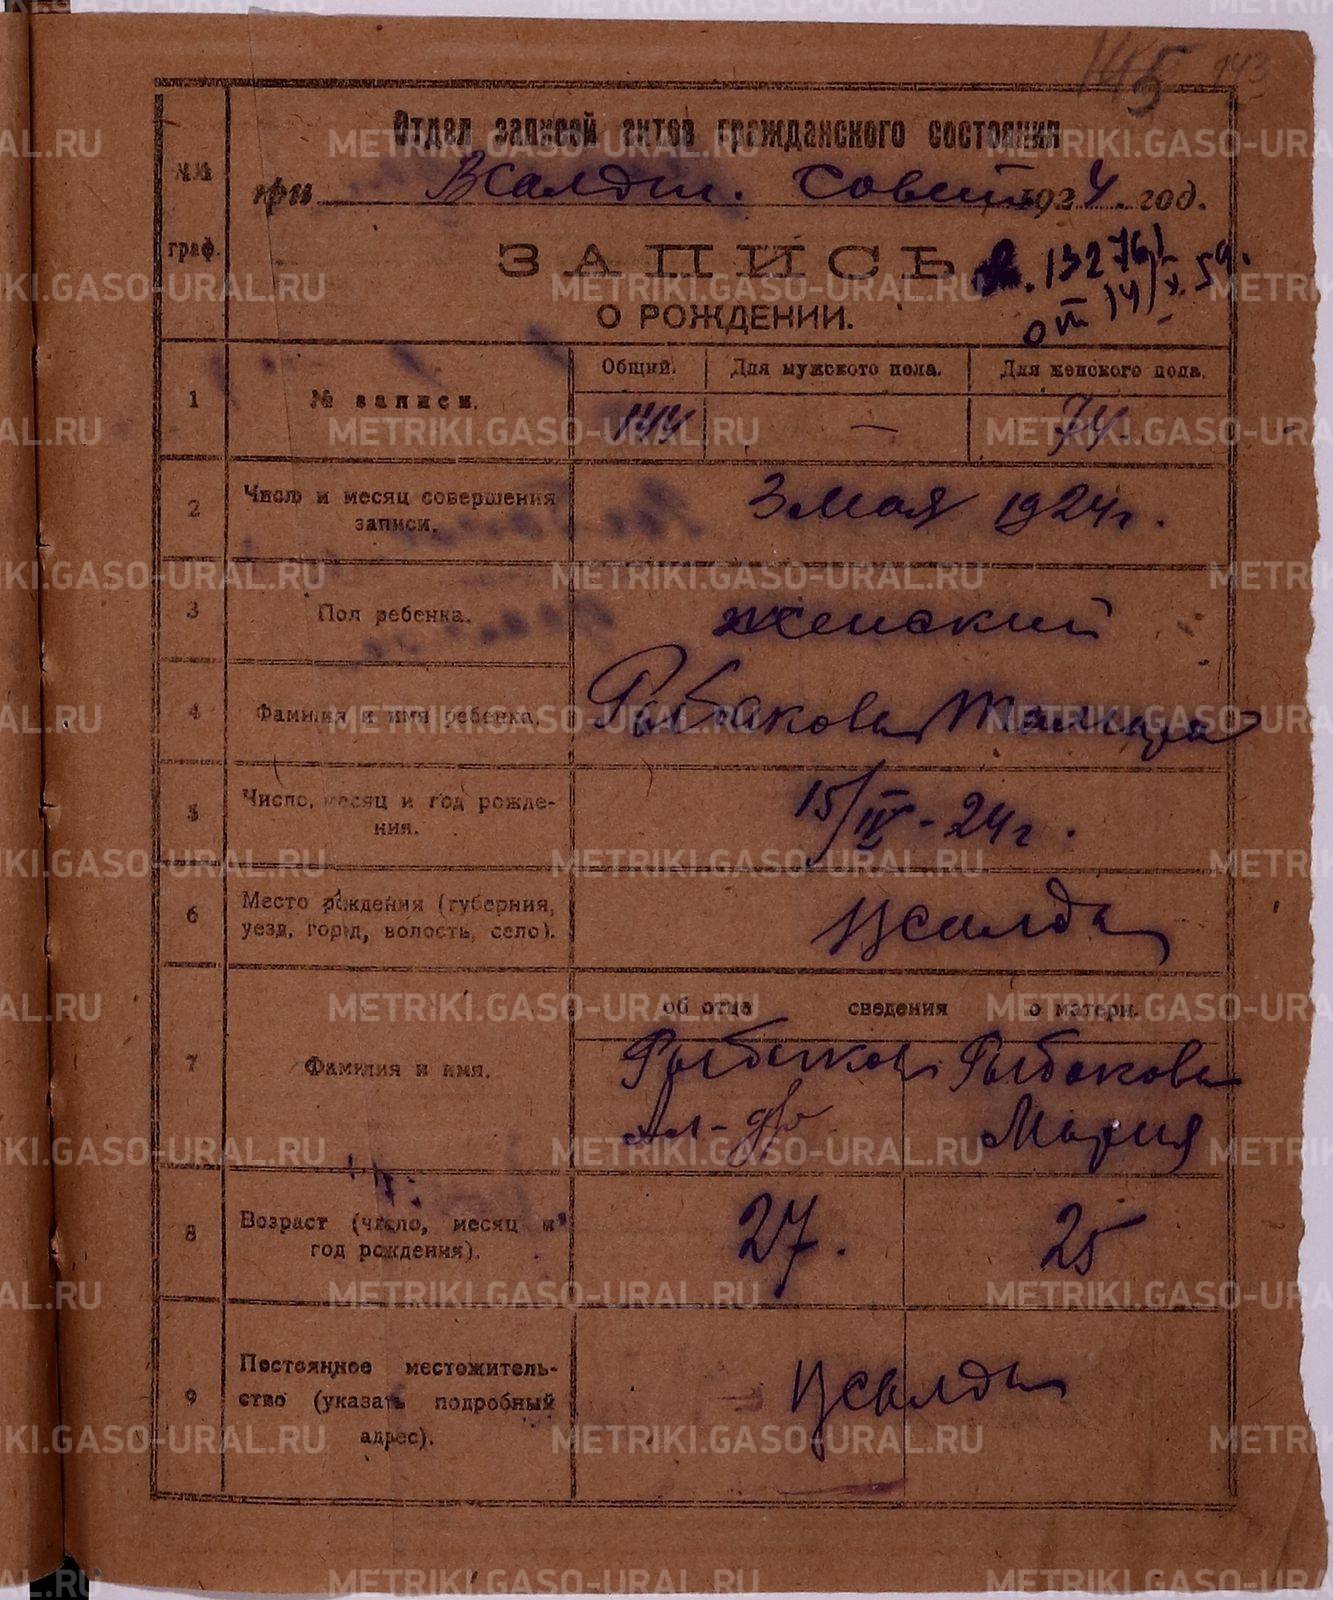 145 143
Отдел записей актов гражданского состояния
№№ граф.
при ВСалдин. Совете 1924. год.
ЗАПИСЬ
О РОЖДЕНИИ.
. 132761
от 14/X. 59.
1 № записи. Общий. Для мужского пола. Для женского пола.
144 — 74.
2 Число и месяц совершения записи. 3 мая 1924 г.
3 Пол ребенка. женский
4 Фамилия и имя ребенка. Рыбакова Тамара
5 Число, месяц и год рожде-
ния. 15/IV - 24 г.
6 Место рождения (губерния,
уезд, город, волость, село). ВСалда
об отце сведения о матери.
7 Фамилия и имя. Рыбаков Рыбакова
Ал-др Мария
8 Возраст (число, месяц и
год рождения). 27. 25
9 Постоянное местожитель-
ство (указать подробный
адрес). ВСалда
METRIKI.GASO-URAL.RU